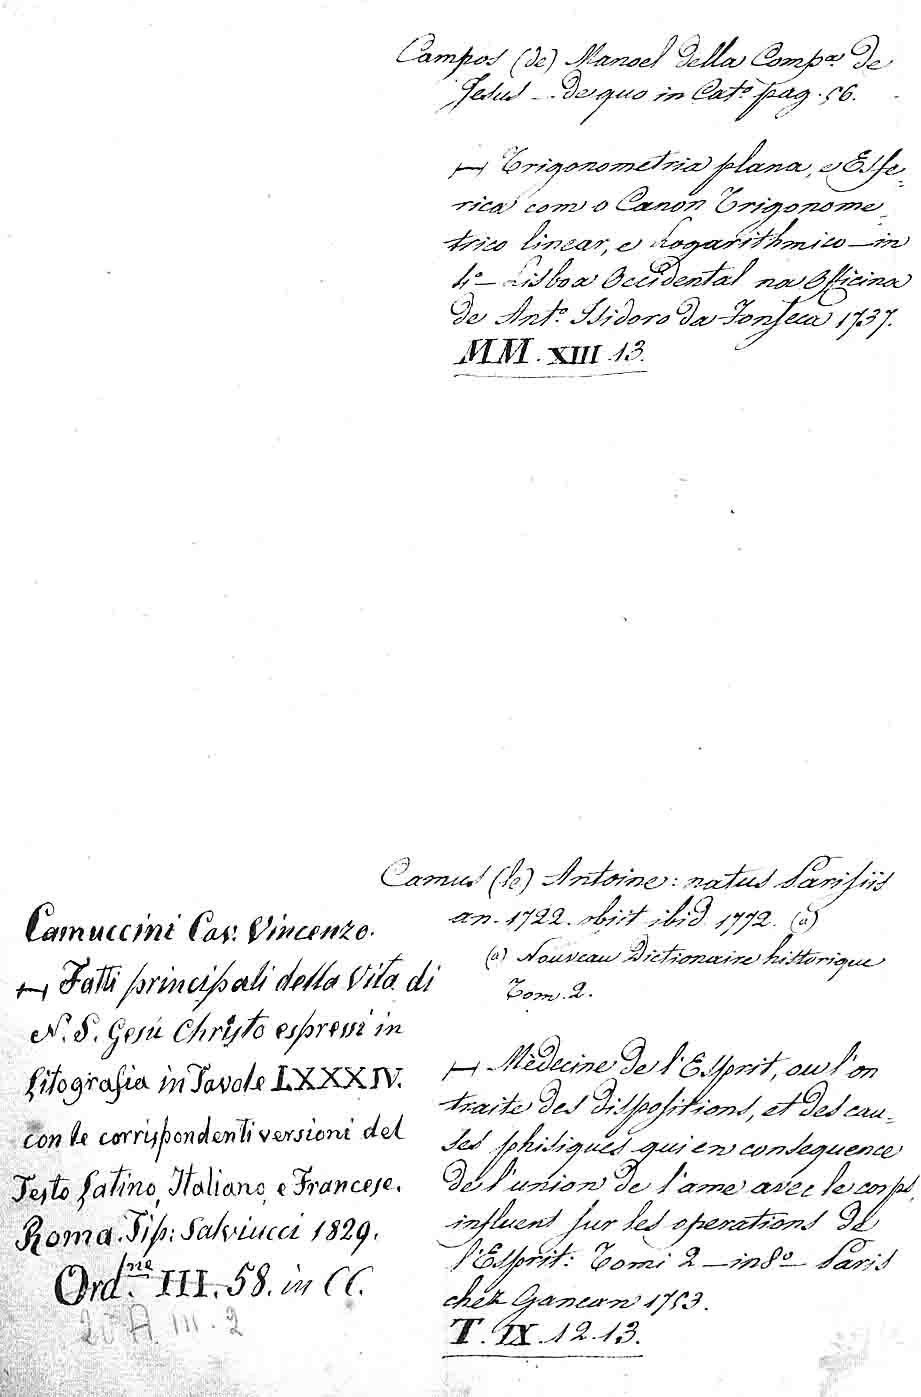 Campos (de) Manoel della Compª de
Jesus — de quo in Catº pag. 56.
⊢ Trigonometria plana, e Esfe-
rica com o Canon Trigonome-
trico linear, e Logarithmico — in
4º — Lisboa Occidental na Officina
de Antº Isidoro da Fonseca 1737.
MM. XIII. 13.
Camus (le) Antoine: natus Parisiis
an. 1722. obiit ibid. 1772. (a)
(a) Nouveau Dictionaire historique
Tom. 2.
⊢ Mèdecine de l'Esprit, ou l'on
traite des dispositions, et des cau-
ses phisiques qui en consequence
de l'union de l'ame avec le corps,
influent sur les operations de
l'Esprit: Tomi 2 — in 8º — Paris
chez Ganeau 1753.
T. IX. 12. 13.
Camuccini Cav: Vincenzo.
⊢ Fatti principali della Vita di
N. S. Gesù Christo espressi in
Litografia in Tavole LXXXIV.
con le corrispondenti versioni del
Testo Latino, Italiano, e Francese.
Roma. Tip: Salviucci 1829.
Ord.ne III. 58. in CC.
20 A III. 2